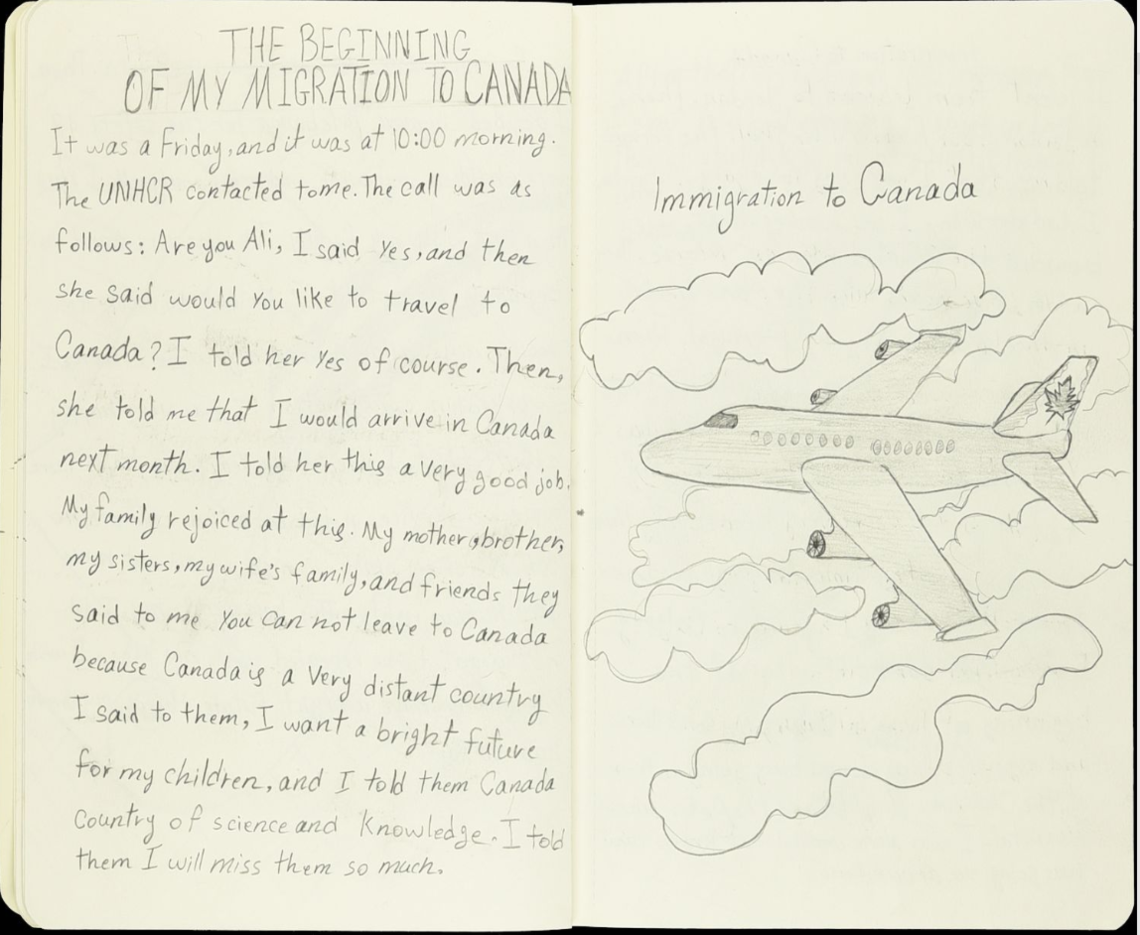 THE BEGINNING
OF MY MIGRATION TO CANADA
It was a Friday, and it was at 10:00 morning.
The UNHCR contacted to me. The call was as
follows: Are you Ali, I said yes, and then
she said would you like to travel to
Canada? I told her yes of course. Then,
she told me that I would arrive in Canada
next month. I told her this a very good job.
My family rejoiced at this. My mother, brother,
my sisters, my wife's family, and friends they
said to me you can not leave to Canada
because Canada is a very distant country
I said to them, I want a bright future
for my children, and I told them Canada
country of science and knowledge. I told
them I will miss them so much.
Immigration to Canada